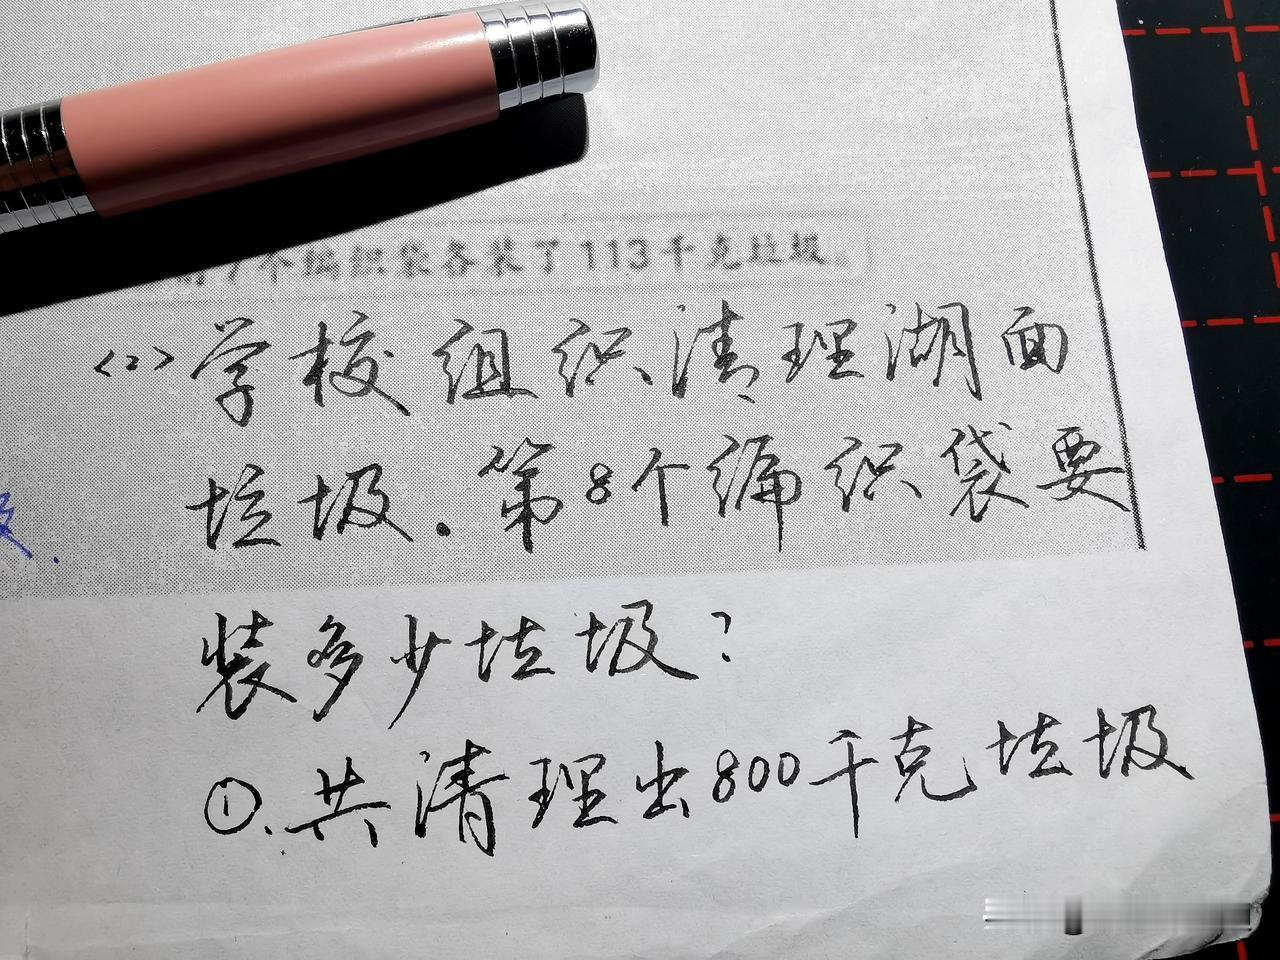 7个编织袋各装了113千克垃圾。
<2>学校组织清理湖面
垃圾.第8个编织袋要
装多少垃圾?
①.共清理出800千克垃圾